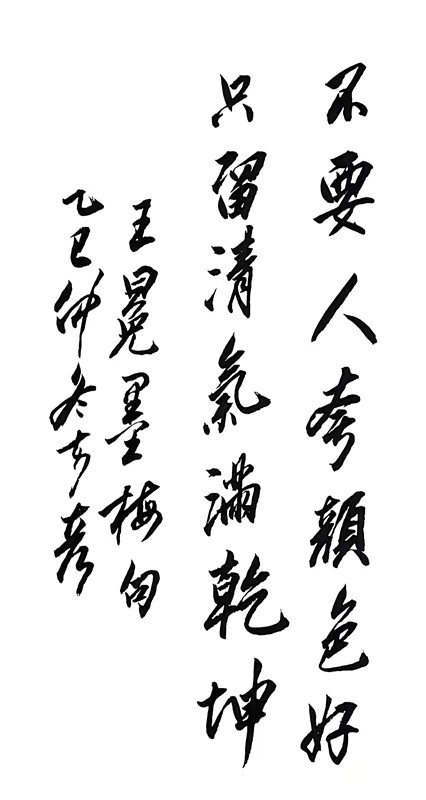 不要人夸顔色好
只留清氣滿乾坤
王冕墨梅句
乙巳仲冬亥彦